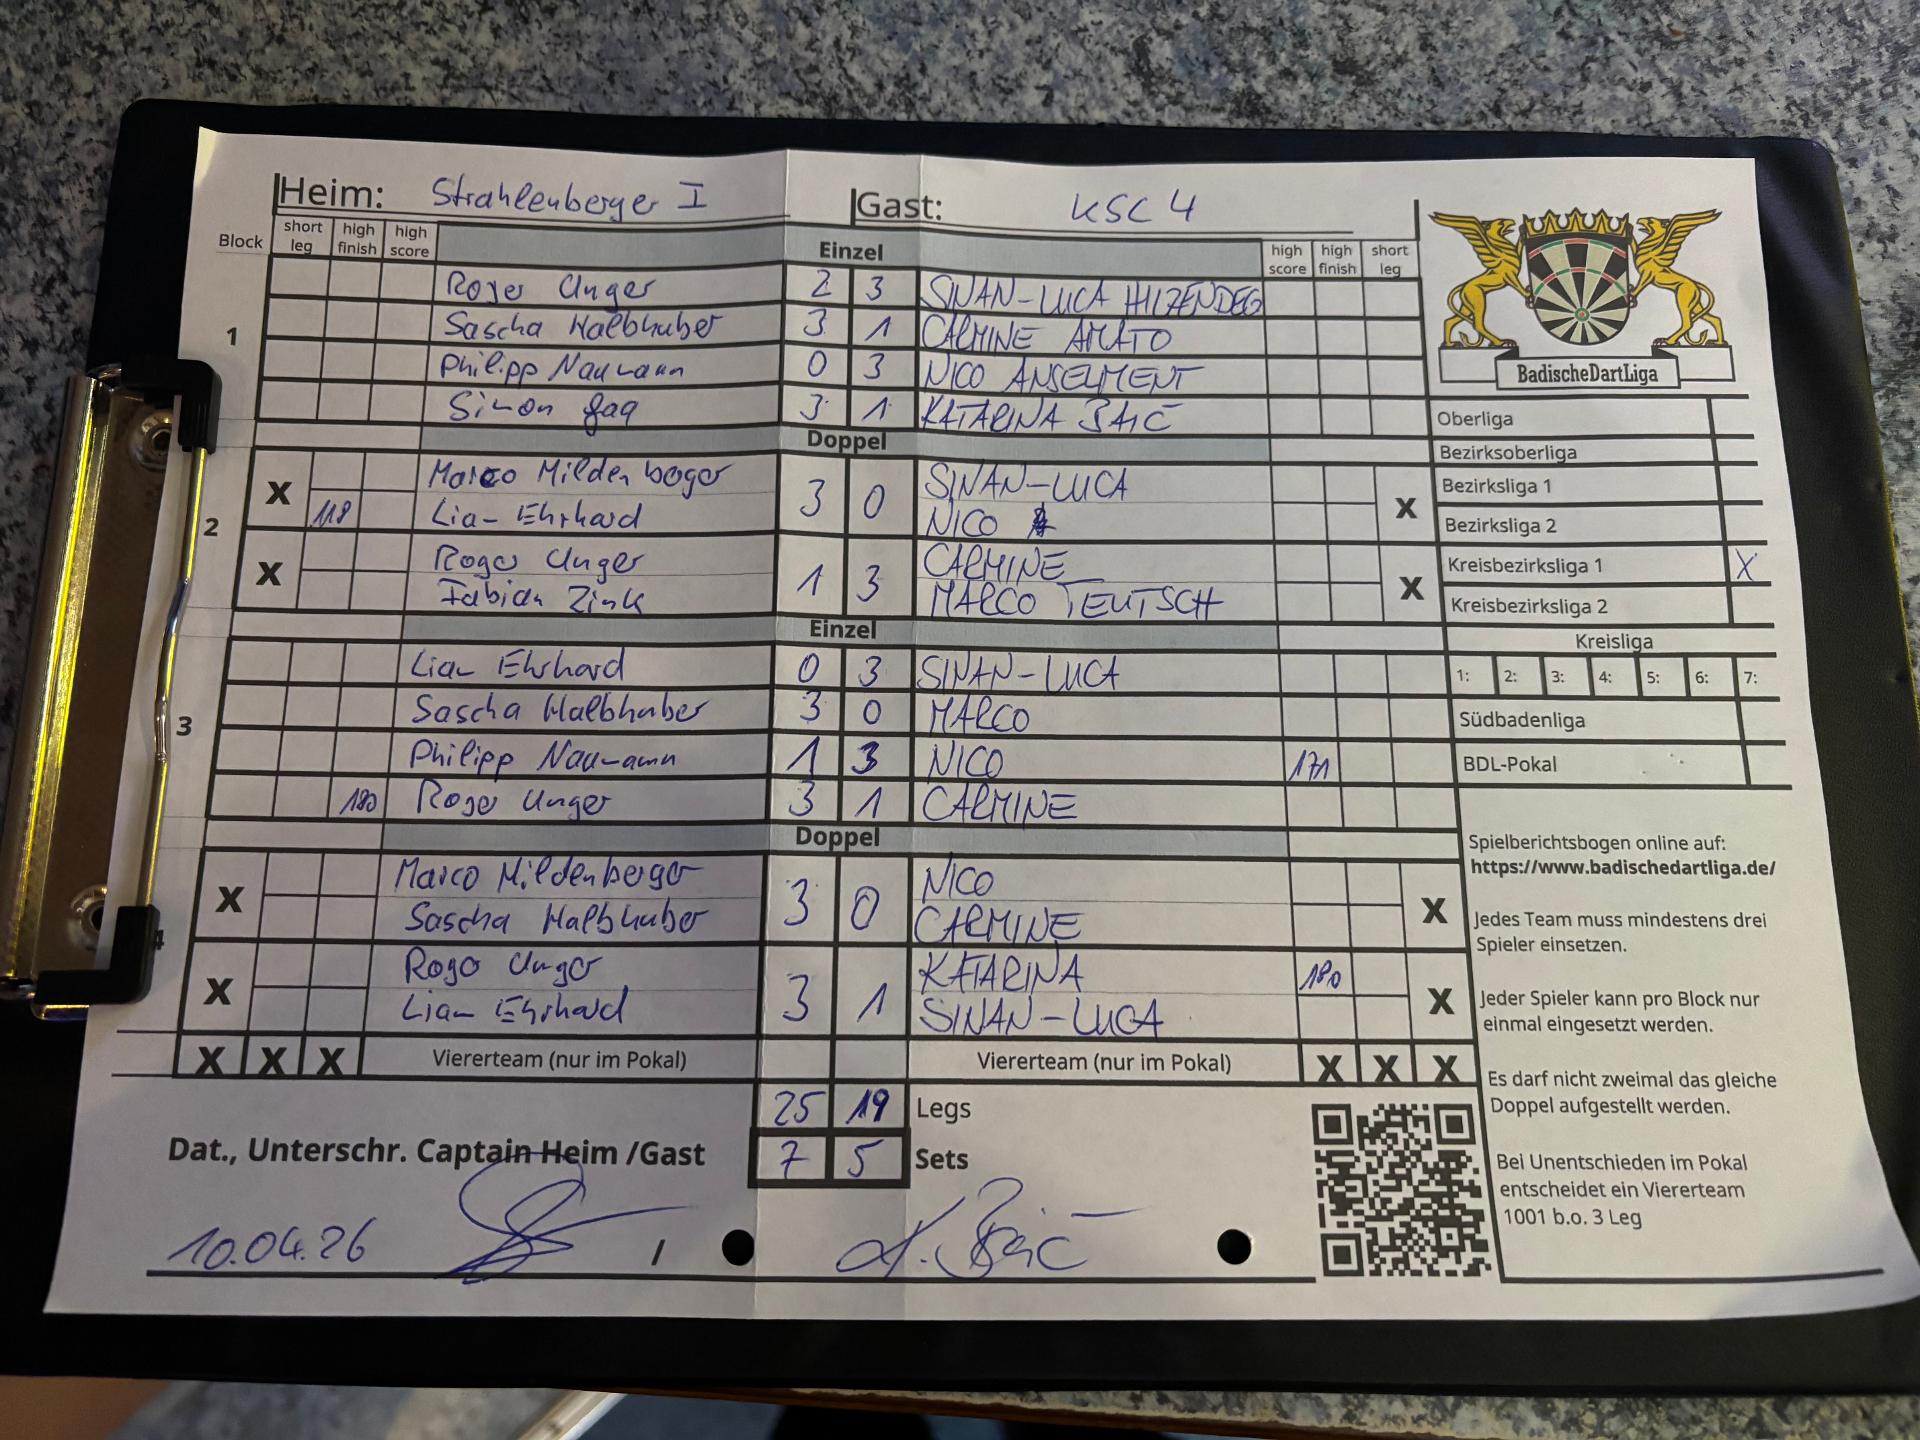 Heim: Strahlenberger I Gast: KSC 4
Block short leg high finish high score Einzel high score high finish short leg
1
Roger Unger 2 3 SINAN-LUCA HILZENDEG
Sascha Halbhuber 3 1 CARMINE AMATO
Philipp Naumann 0 3 NICO ANSELMENT
Simon 3 1 KATARINA BAIC
Doppel
2
X Marco Mildenberger 3 0 SINAN-LUCA X
118 Lian Ehrhard NICO
X Roger Unger 1 3 CARMINE X
Fabian Zink MARCO TEUTSCH
Einzel
3
Lian Ehrhard 0 3 SINAN-LUCA
Sascha Halbhuber 3 0 MARCO
Philipp Naumann 1 3 NICO 171
180 Roger Unger 3 1 CARMINE
Doppel
4
X Marco Mildenberger 3 0 NICO X
Sascha Halbhuber CARMINE
X Roger Unger 3 1 KATARINA 180 X
Lian Ehrhard SINAN-LUCA
X X X Viererteam (nur im Pokal) Viererteam (nur im Pokal) X X X
25 19 Legs
7 5 Sets
Dat., Unterschr. Captain Heim /Gast
10.04.26 / K. Baic
BadischeDartLiga
Oberliga
Bezirksoberliga
Bezirksliga 1
Bezirksliga 2
Kreisbezirksliga 1 X
Kreisbezirksliga 2
Kreisliga
1: 2: 3: 4: 5: 6: 7:
Südbadenliga
BDL-Pokal
Spielberichtsbogen online auf:
https://www.badischedartliga.de/
Jedes Team muss mindestens drei
Spieler einsetzen.
Jeder Spieler kann pro Block nur
einmal eingesetzt werden.
Es darf nicht zweimal das gleiche
Doppel aufgestellt werden.
Bei Unentschieden im Pokal
entscheidet ein Viererteam
1001 b.o. 3 Leg